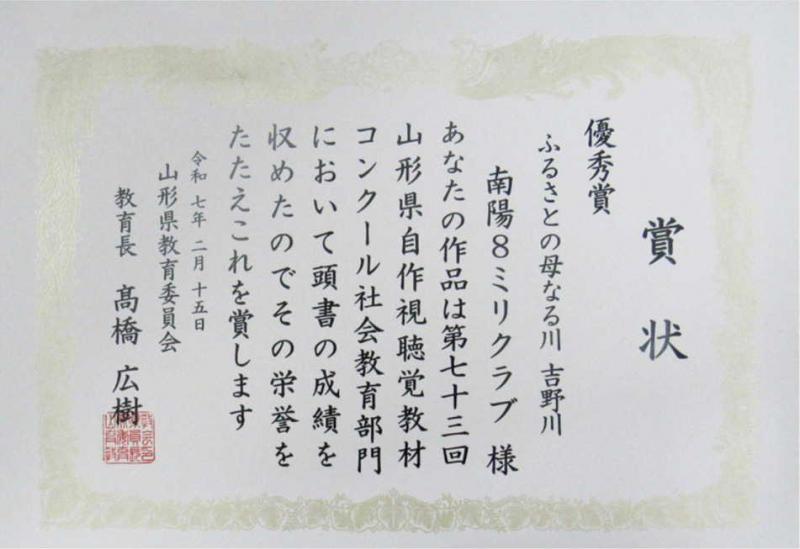 賞状
優秀賞
ふるさとの母なる川 吉野川
南陽8ミリクラブ 様
あなたの作品は第七十三回
山形県自作視聴覚教材
コンクール社会教育部門
において頭書の成績を
収めたのでその栄誉を
たたえこれを賞します
令和 七年 二月 十五日
山形県教育委員会
教育長 髙橋 広樹